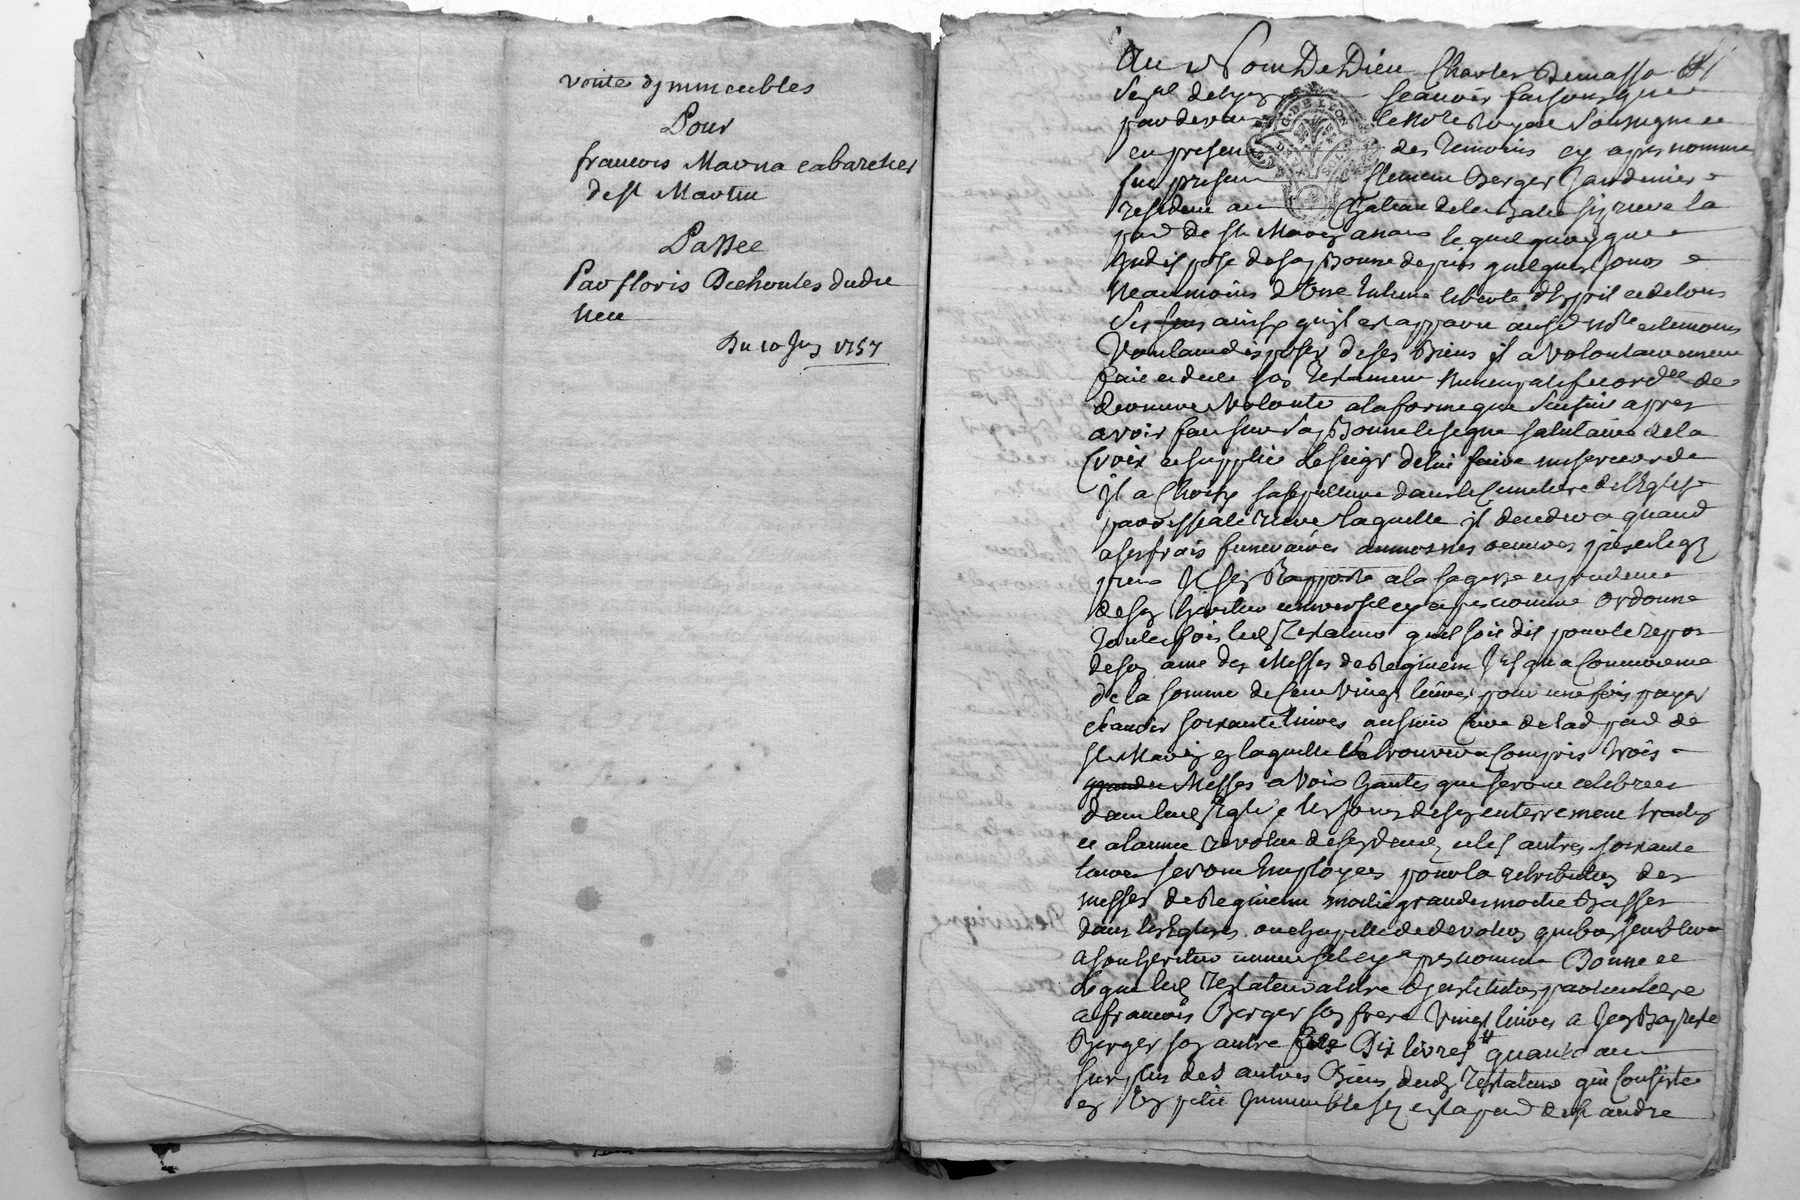 vente dimmeubles
Pour
francois Marna cabaretier
de st Martin
Passée
Par floris Dechoules dudit
lieu
Du 10 Juin 1757
Au Nom De Dieu Charles Demasso
Senal de Lyon scavoir faisons que
pardevant le no.re Royal soussigné
en presence des temoins cy apres nommés
fut present Clement Berger Jardinier
resident au Chateau de la riere la
par de st lequel quoyque
Indispose de sa personne depuis quelques jours
neanmoins dans une entiere liberté d'Esprit et de tous
ses sens ainsy quil est apparu aud no.re et temoins
Voulant disposer de ses Biens il a volontairement
fait et dicté son testament nuncupatif et ord.ce de
derniere volonté a la forme que sensuit apres
avoir fait sur sa personne le signe salutaire de la
Croix et supplié le seigr de lui faire misericorde
Il a Choisy sa sepulture dans le Cimetiere de lEglise
parroissiale riere laquelle il decedera quand
a ses frais funeraires aumosnes oeuvres pies et legs
pieux Il sen Rapporte a la sagesse et prudence
de son heritier universel cy apres nommé ordonne
toutesfois led testateur quil soit dit pour le repos
de son ame des Messes de Requiem Jusqua Concurrence
de la somme de six vingt livres pour une fois payer
scavoir soixante livres au sieur Curé de lad par de
st en laquelle se trouvera Compris trois
grandes Messes a voix hautes que seront celebrées
dans lad Eglise les jours de son enterrement
et a lannée revolue de son deces et les autres soixante
livres seront Employés pour la retribution des
messes de Requiem moitié grandes moitié Basses
dans les Eglises ou chapelle de devotion que bon semblera
a son heritier universel cy apres nommé Donne et
Legue led testateur a titre dinstitution particuliere
a francois Berger son frere vingt livres a Jean Baptiste
Berger son autre frere Dix livres quant au
surplus des autres Biens dud testateur qui Consiste
en un petit Immeuble sis en la par de st andré